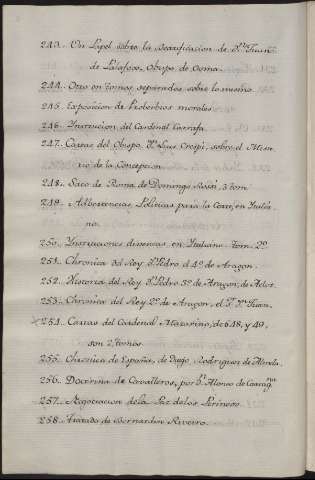 243. Un Papel sobre la Beatificacion de Dn. Juan
de Palafox, Obispo de Osma.
244. Otro en tomos separados sobre lo mismo
245. Exposicion de Proberbios morales
246. Ynstruccion del Cardenal Carrafa.
247. Cartas del Obispo Dn. Luis Crespi, sobre el Miste
rio de la Concepcion
248. Saco de Roma de Domingo 3 tom.
249. Advertencias Politicas para la Corte, en Ytalia
no.
250. Ynstrucciones diversas en Ytaliano. tom. 2º.
251. Chronica del Rey Dn. Pedro el 4º de Aragon.
252. Historia del Rey Dn. Pedro 3º de Aragon, de
253. Chronica del Rey 2º de Aragon, el Dn. Juan.
254. Cartas del Cardenal Mazarino, de 648, y 49,
son 2 tomos.
255. Chronica de España, de Diego Rodriguez de Almela.
256. Doctrina de Cavalleros, por Dn. Alonso de Cartagna.
257. Negociacion de la Paz de los Pirineos.
258. Tratado de Bernardin Riveiro.